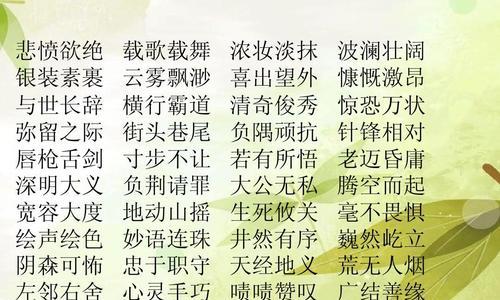 悲愤欲绝 载歌载舞 浓妆淡抹 波澜壮阔
银装素裹 云雾飘渺 喜出望外 慷慨激昂
与世长辞 横行霸道 清奇俊秀 惊恐万状
弥留之际 街头巷尾 负隅顽抗 针锋相对
唇枪舌剑 寸步不让 若有所悟 老迈昏庸
深明大义 负荆请罪 大公无私 腾空而起
宽容大度 地动山摇 生死攸关 毫不畏惧
绘声绘色 妙语连珠 井然有序 巍然屹立
阴森可怖 忠于职守 天经地义 荒无人烟
左邻右舍 心灵手巧 啧啧赞叹 广结善缘